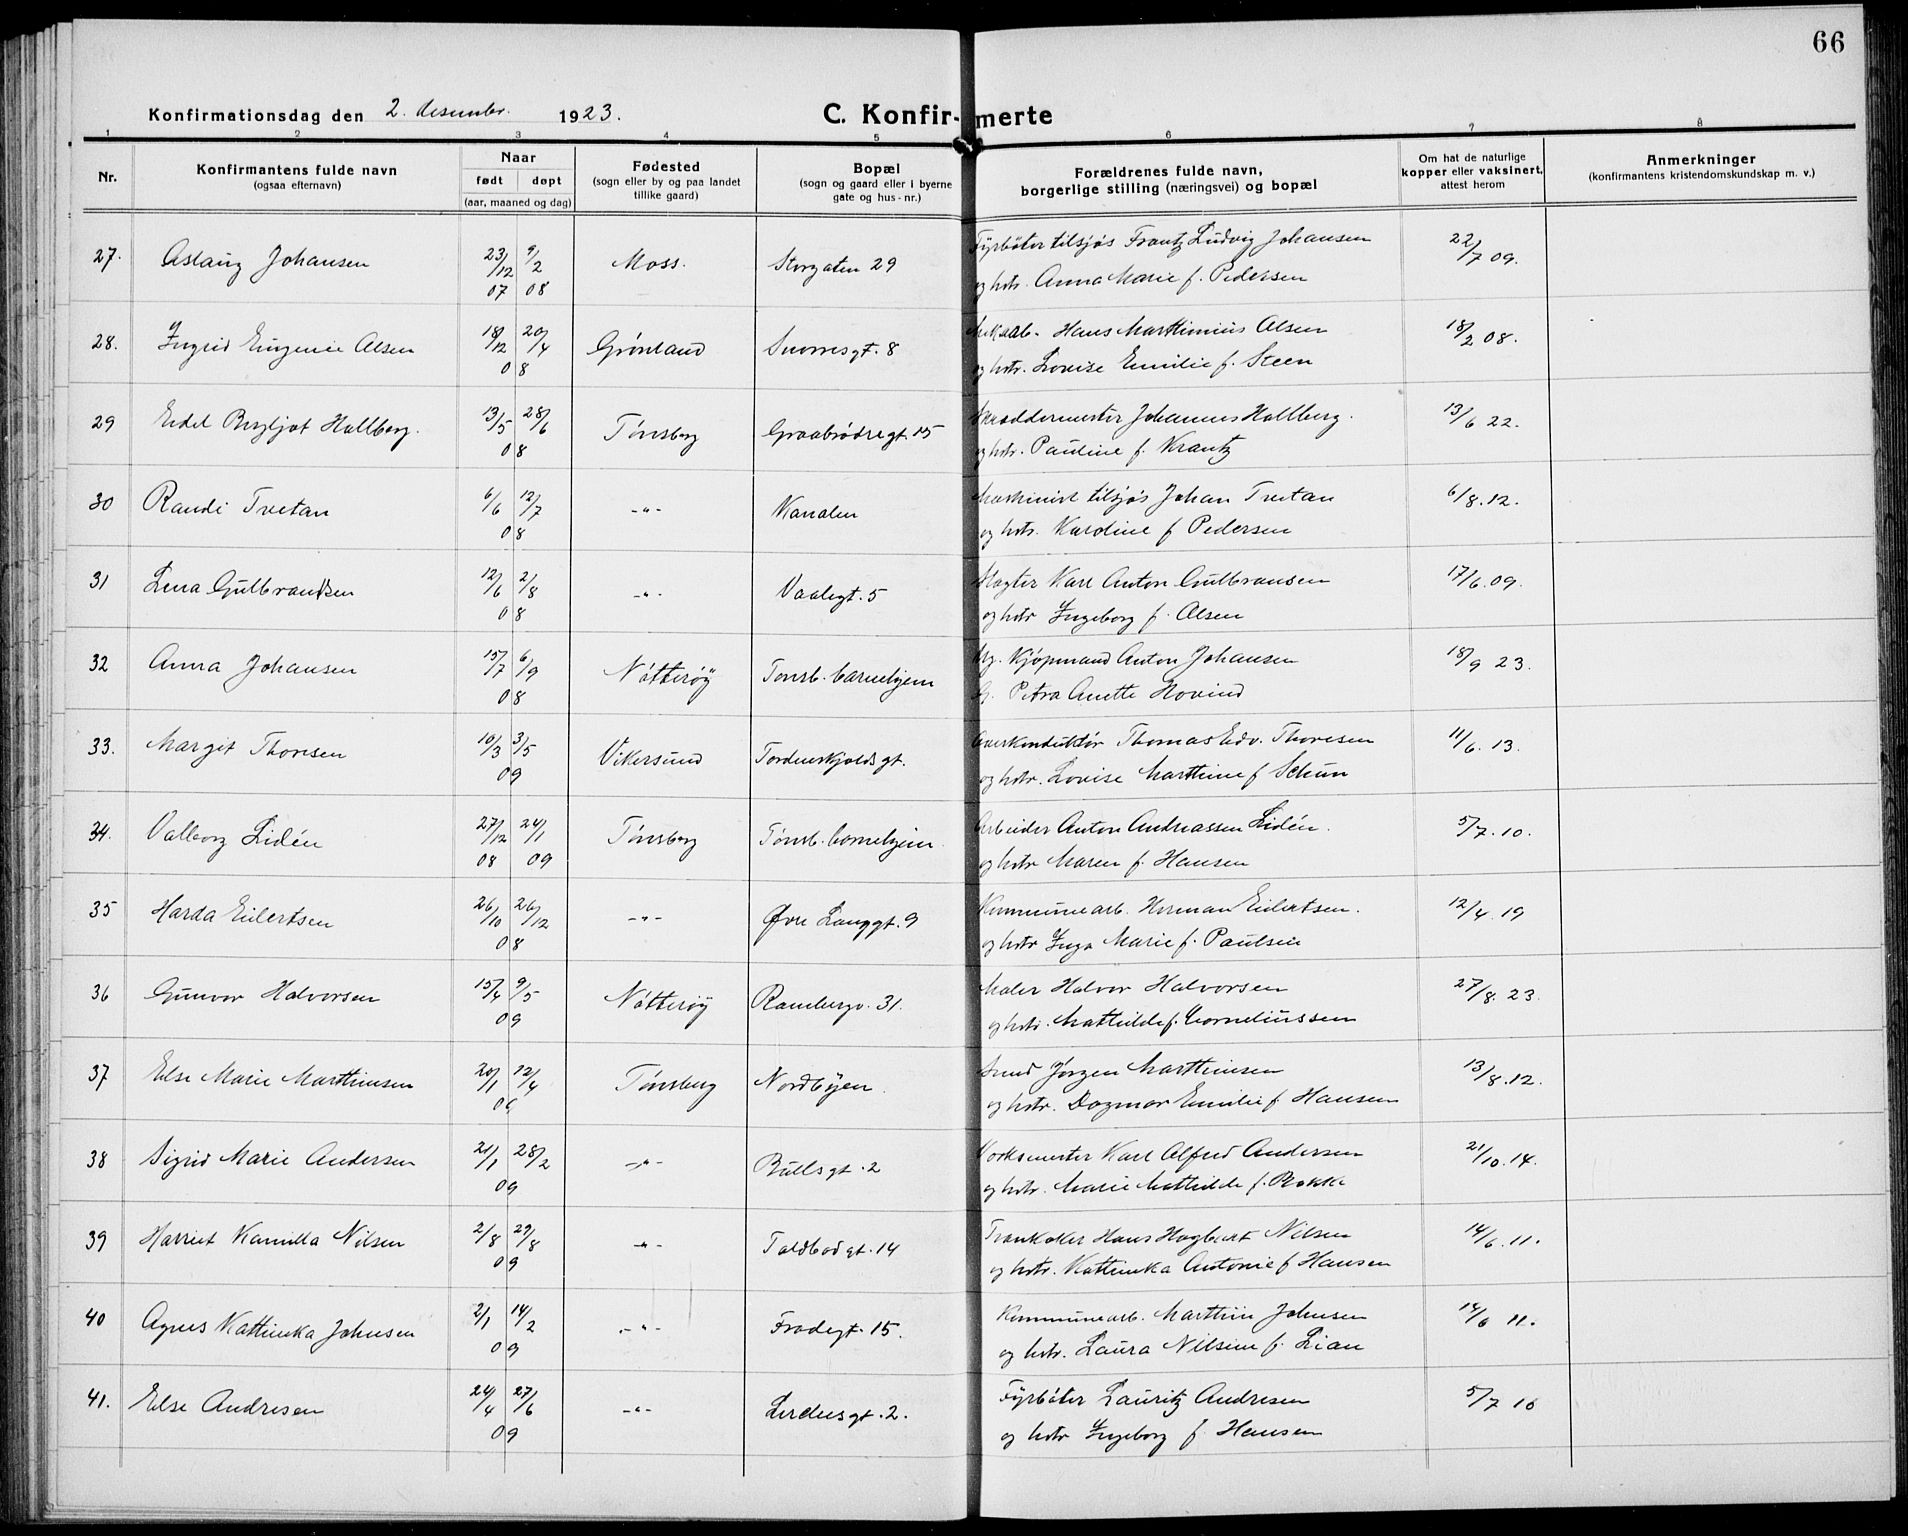 66
Konfirmationsdag den 2. desembr. 1923. C. Konfir- merte
1 2 3 4 5 6 7 8
Nr. Konfirmantens fulde navn (ogsaa efternavn) Naar født døpt (aar, maaned og dag) Fødested (sogn eller by og paa landet tillike gaard) Bopæl (sogn og gaard eller i byerne gate og hus-nr.) Forældrenes fulde navn, borgerlige stilling (næringsvei) og bopæl Om hat de naturlige kopper eller vaksinert, attest herom Anmerkninger (konfirmantens kristendomskundskap m. v.)
27. Aslaug Johansen 23/12 07 9/2 08 Moss. Storgaten 29 Fyrbøter tilsjøs Frantz Ludvig Johansen 22/7 09.
og hstr. Anna Marie f. Pedersen
28. Ingrid Eugenie Olsen 18/12 20/4 08 Grønland Snorresgt. 8 Hans Marthinius Olsen 18/2 08.
og hstr. Lovise Emilie f. Steen
29 Eidel Bergljot Hallberg. 13/5 28/6 08 Tønsberg Graabrødregt. 15 Skræddermester Johannes Hallberg. 13/6 22.
og hstr. Pauline f. Krantz
30 Randi Tvetan 6/6 12/7 08 -"- Kanalen Maskinist tilsjøs Johan Tvetan 6/8. 12.
og hstr. Karoline f Pedersen
31 Lena Gulbrandsen 12/6 2/8 08 -"- Vaalegt. 5 Slagter Karl Anton Gulbransen 17/6. 09.
og hstr Ingeborg f. Olsen
32 Anna Johansen 15/7 6/9 08 Nøtterøy Tønsb. barnehjem Ug. Kjøpmand Anton Johansen 18/9 23.
G. Petra Anette Hovind
33. Margit Thoresen 10/3 3/5 09 Vikersund Tordenskjoldsgt. Overkonduktør Thomas Edv. Thoresen 11/6. 13.
og hstr. Lovise Marthine f Schun
34. Valborg Lidén 27/12 08 24/1 09 Tønsberg Tønsb. barnehjem. Arbeider Anton Andreassen Lidén. 5/7. 10.
og hstr Maren f. Hansen
35 Harda Eilertsen 26/10 26/12 08 -"- Øvre Langgt. 9 Kommunearb. Herman Eilertsen. 12/4. 19
og hstr Inga Marie f. Paulsen
36 Gunvor Halvorsen 15/4 9/5 09 Nøtterøy Rambergv. 31. Maler Halvor Halvorsen 27/8. 23.
og hstr. Mathilde f. Corneliussen
37 Else Marie Marthinsen 20/1 12/4 09 Tønsberg Nordbyen. Smed Jørgen Marthinsen 13/8. 12.
og hstr. Dagmar Emilie f Hansen
38 Sigrid Marie Andersen 21/1 28/2 09 -"- Bullsgt. 2 Verksmester Karl Alfred Andersen 21/10. 14.
og hstr. Marie Mathilde f. Bakke
39 Harriet Kamilla Nilsen 2/8 29/8 09 -"- Toldbodgt. 14 Trankoker Hans Hagbart Nilsen 14/6. 11.
og hstr. Kathinka Antonie f Hansen
40 Agnes Kathinka Johnsen 2/1 14/2 09 -"- Frodegt. 15. Kommunearb. Marthin Johnsen 14/6 11.
og hstr. Laura Nilsine f. Lian
41. Else Andresen 24/4 27/6 09 -"- Lerdersgt. 2. Fyrbøter Lauritz Andresen 5/7 16
og hstr Ingeborg f Hansen